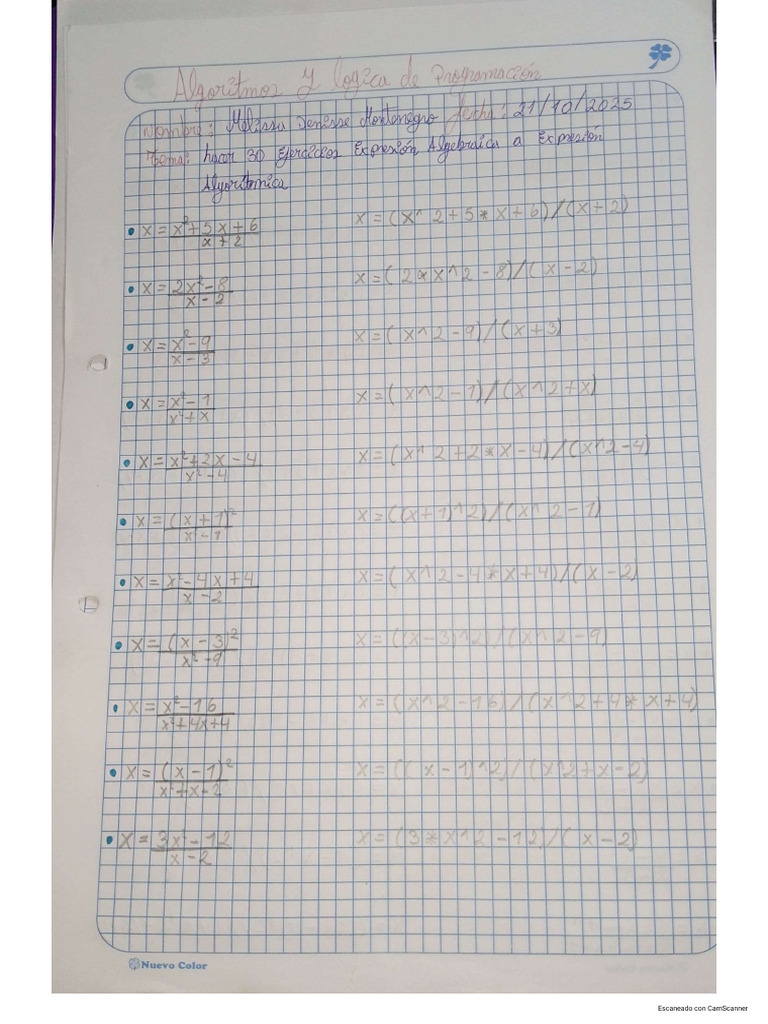 Algoritmos y logica de Programación
Nombre: Melissa Denisse Montenegro fecha: 21/10/2025
Tema: hacer 30 Ejercicios Expresión Algebraica a Expresión
Algoritmica
• x = x²+5x+6 / x+2    x = (x^2+5*x+6)/(x+2)
• x = 2x²-8 / x-2    x = (2*x^2-8)/(x-2)
• x = x²-9 / x-3    x = (x^2-9)/(x+3)
• x = x²-1 / x²+x    x = (x^2-1)/(x^2+x)
• x = x²+2x-4 / x²-4    x = (x^2+2*x-4)/(x^2-4)
• x = (x+1)² / x²-1    x = ((x+1)^2)/(x^2-1)
• x = x²-4x+4 / x-2    x = (x^2-4*x+4)/(x-2)
• x = (x-3)² / x²-9    x = ((x-3)^2)/(x^2-9)
• x = x²-16 / x²+4x+4    x = (x^2-16)/(x^2+4*x+4)
• x = (x-1)² / x²+x-2    x = ((x-1)^2)/(x^2+x-2)
• x = 3x²-12 / x-2    x = (3*x^2-12)/(x-2)
Nuevo Color
Escaneado con CamScanner